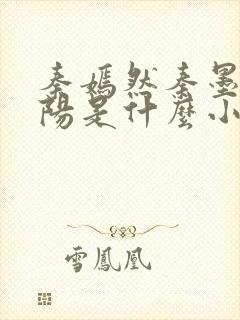 秦嫣然秦墨
陽是什麼小
雪鳳凰